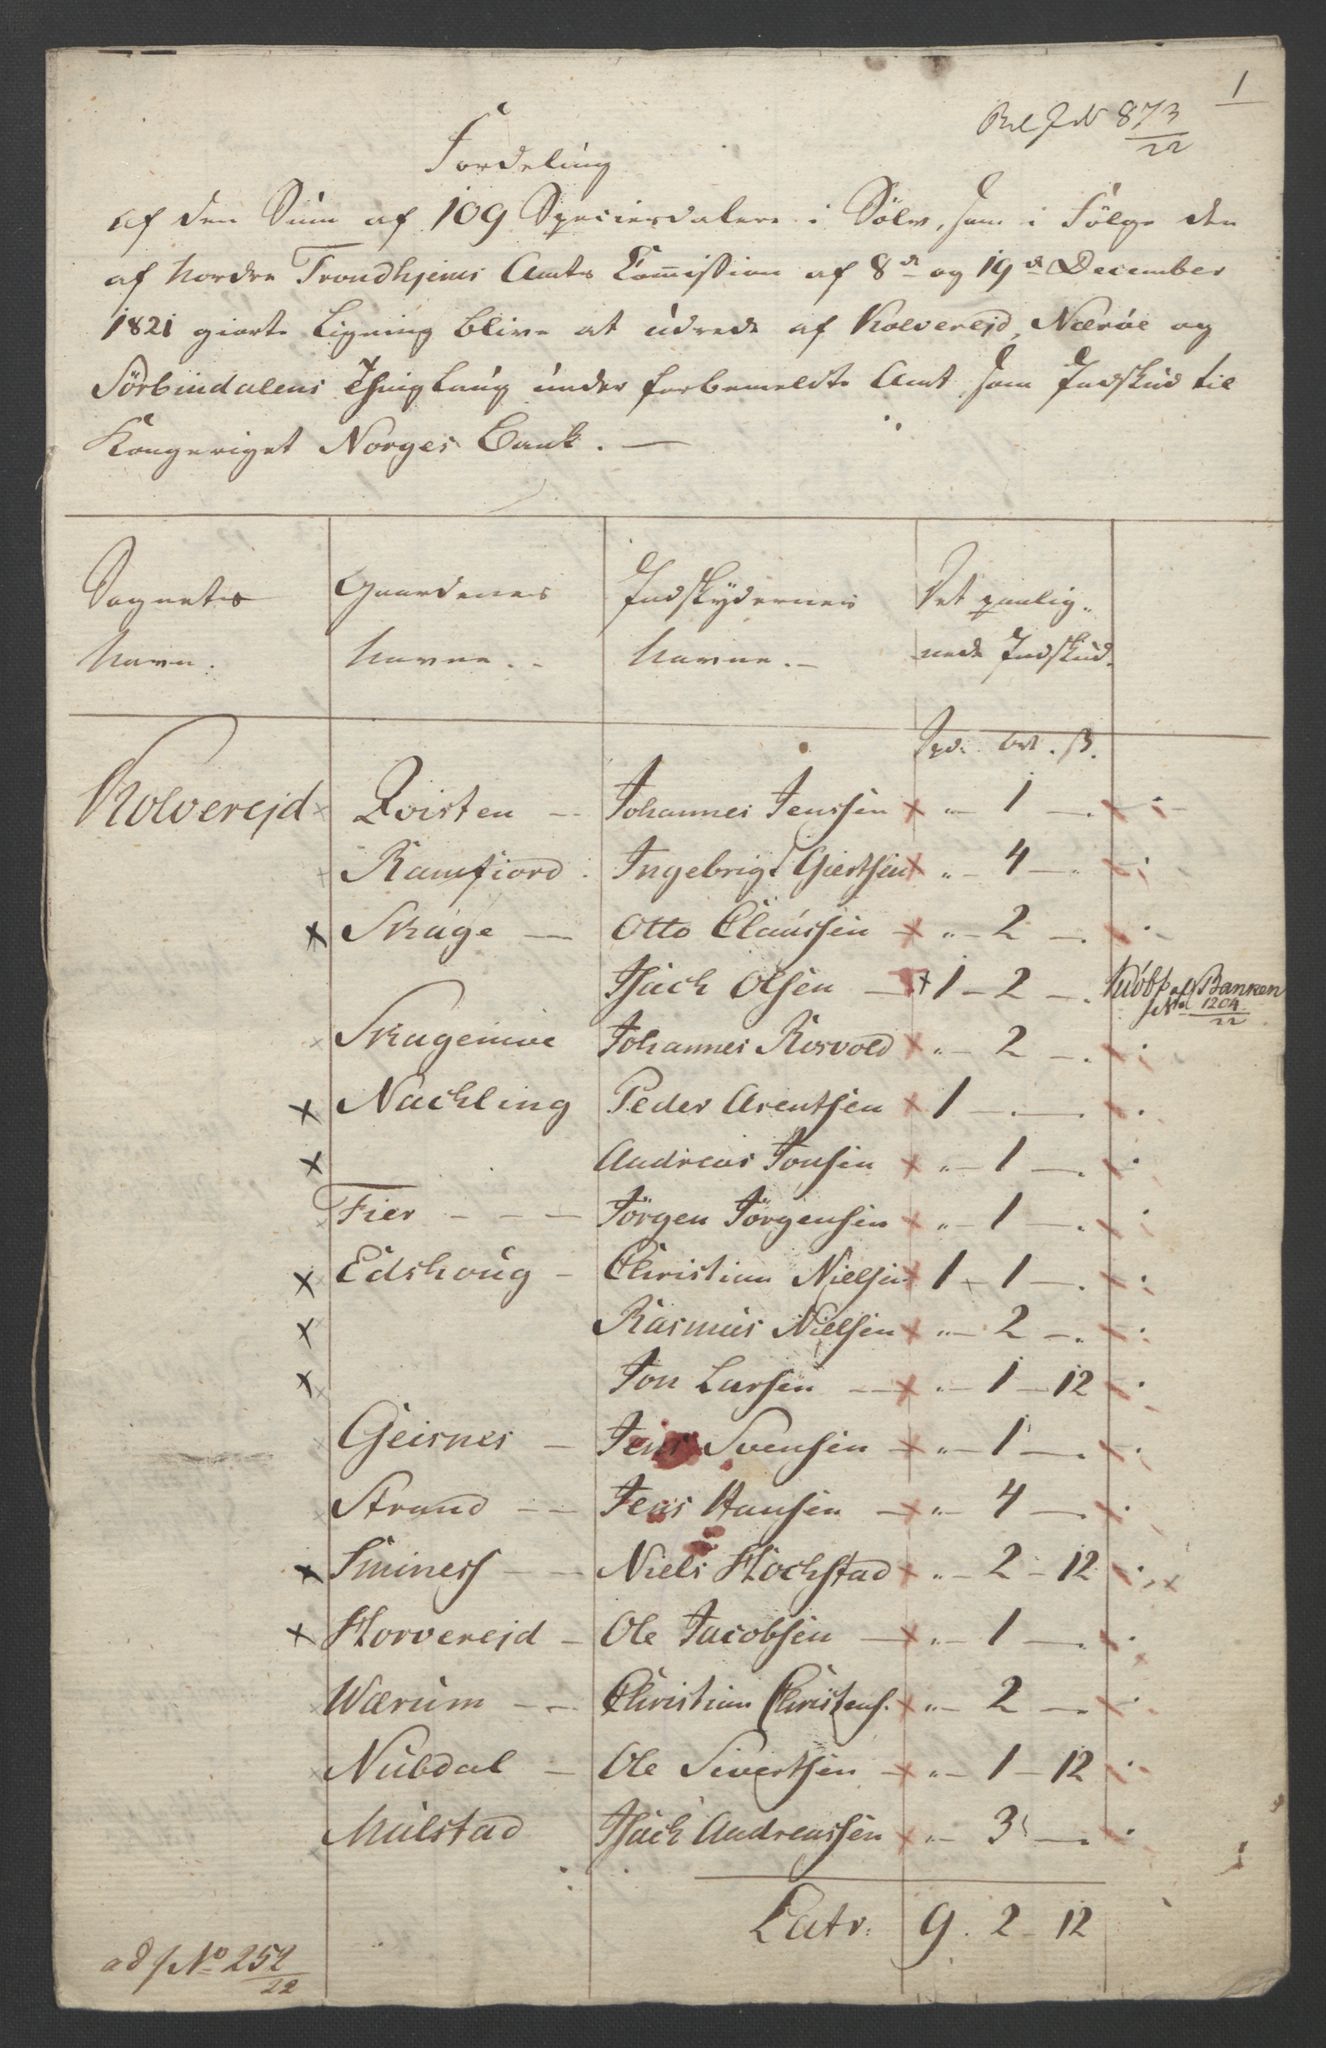 1
873
22
Fordeling
af den Sum af 109 Speciesdalere i Sölv, som i Fölge den
af Nordre Trondhjems Amts Commission af 8de og 19de December
1821 giorte Ligning blive at udrede af Kolverejd, Næröe og
Sörbindalens Thinglaug under forbemeldte Amt som Indskud til
Kongeriget Norges Bank. —
Sognets Gaardenes Indskydernes Det paalig-
Navn. Navne. Navne. nede Indskud.
Spd. Ort. ß.
Kolverejd Qvisten — Johannes Jenssen " 1 —
Ramfiord Ingebrigt Giertsen " 4 —
Skage — Otto Claussen " 2 —
Isach Olsen — 1 — 2 — Kiöbt af Banken
1204
22
Skagemoe Johannes Rosvold " 2 —
Nachling Peder Arentsen 1 — —
Andreas Jonsen " 1 —
Fier — — — Jörgen Jörgensen " 1 —
Edshoug — Christian Nielsen 1 — 1 —
Rasmus Nielsen " 2 —
Jon Larsen — " 1 — 12
Geisnes — Jens Svensen — " 1 —
Strand — — Jens Hansen — " 4 —
Smines — — Niels Flochstad " 2 — 12
Horverejd — Ole Jacobsen — " 1 —
Wærum — — Christian Christens. " 2 —
Nubdal — Ole Sivertsen — " 1 — 12
Mulstad Isach Andreassen " 3 —
Latr. 9. 2 — 12
ad J No 252
22